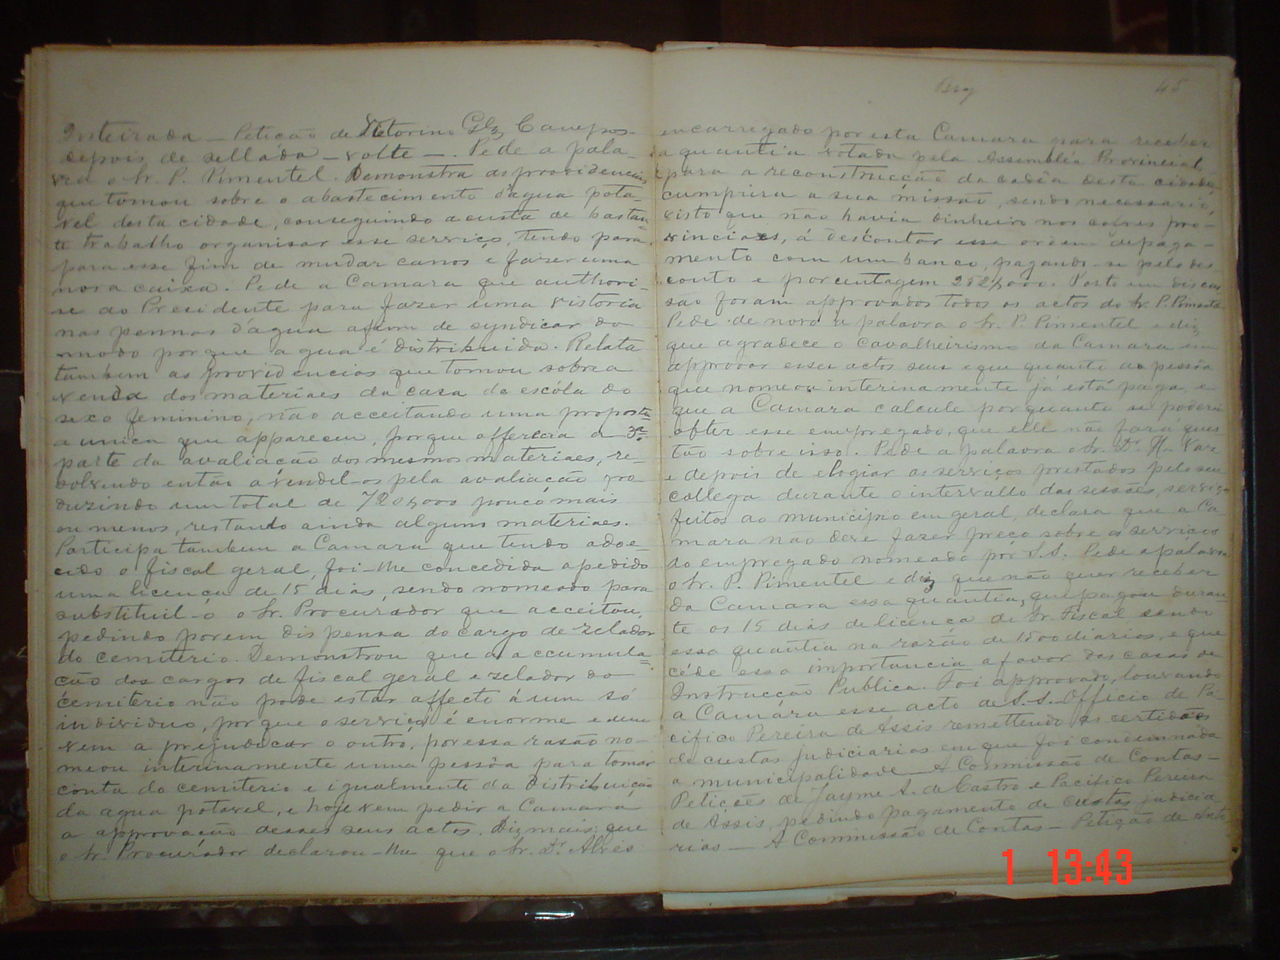 Inteirada — Petição de Victorino Glz Campos
depois de sellada — volte —. Pede a pala-
vra o Sr. P. Pimentel. Demonstra as providencias
que tomou sobre o abastecimento d'agua pota-
vel desta cidade, conseguindo a custa de bastan-
te trabalho organisar esse serviço, tendo para
para esse fim de mudar canos e fazer uma
nova caixa. Pede a Camara que authori-
se ao Presidente para fazer uma vistoria
nas pennas d'agua afim de syndicar do
modo porque a agua é distribuida. Relata
tambem as providencias que tomou sobre a
venda dos materiaes da casa da escóla do
sexo feminino, não acceitando uma proposta
a unica que appareceu, porque offerecia a 3ª
parte da avaliação dos mesmos materiaes, re-
solvendo então a vendel-os pela avaliação pro
duzindo um total de 720$000 pouco mais
ou menos, restando ainda alguns materiaes.
Participa tambem a Camara que tendo adoe-
cido o fiscal geral, foi-lhe concedida a pedido
uma licença de 15 dias, sendo nomeado para
substituil-o o Sr. Procurador que acceitou,
pedindo porem dispensa do cargo de zelador
do cemiterio. Demonstrou que a accumula-
ção dos cargos de fiscal geral e zelador do
cemiterio não pode estar affecto á um só
individuo, porque o serviço é enorme e um
vem a prejudicar o outro, por essa rasão no-
meou interinamente uma pessôa para tomar
conta do cemiterio e igualmente da distribuição
da agua potavel, e hoje vem pedir a Camara
a approvação desses seus actos. Diz mais que
o Sr. Procurador declarou-lhe que o Sr. Dr. Alves
45
encarregado por esta Camara para receber
a quantia votada pela Assemblia Provincial
para a reconstrucção da cadêa desta cidade
cumprira a sua missão, sendo necessario,
visto que não havia dinheiro nos cofres pro-
vinciaes, á descontar essa ordem de paga-
mento com um banco, pagando-se pelo des
conto e porcentagem 252$000. Posto em discus
são foram approvados todos os actos do Sr. P. Pimentel
Pede de novo a palavra o Sr. P. Pimentel e diz
que agradece o cavalheirismo da Camara em
approvar esses actos seus e que quanto a pessôa
que nomeou interinamente já está paga e
que a Camara calcule por quanto se poderá
obter esse empregado, que elle não fará ques
tão sobre isso. Pede a palavra o Sr. Dr. H. Vaz
e depois de elogiar os serviços prestados pelo seu
collega durante o intervallo das sessões, serviços
feitos ao municipio em geral, declara que a Ca
mara não deve fazer preço sobre os serviços
do empregado nomeado por S.S. Pede a palavra
o Sr. P. Pimentel e diz que não quer receber
da Camara essa quantia, que pagou duran-
te os 15 dias de licença do Sr. Fiscal sendo
essa quantia na razão de 1500 diarios, e que
céde essa importancia a favor das casas de
Instrucção Publica. Foi approvado, louvando
a Camára esse acto de S.S. Officio de Pa-
cifico Pereira de Assis remettendo as certidões
de custas judiciarias em que foi condemnada
a municipalidade — A Commissão de Contas —
Petições de Jayme A. de Castro e Pacifico Pereira
de Assis, pedindo pagamento de custas judicia
rias — A Commissão de Contas — Petição de
1 13:43